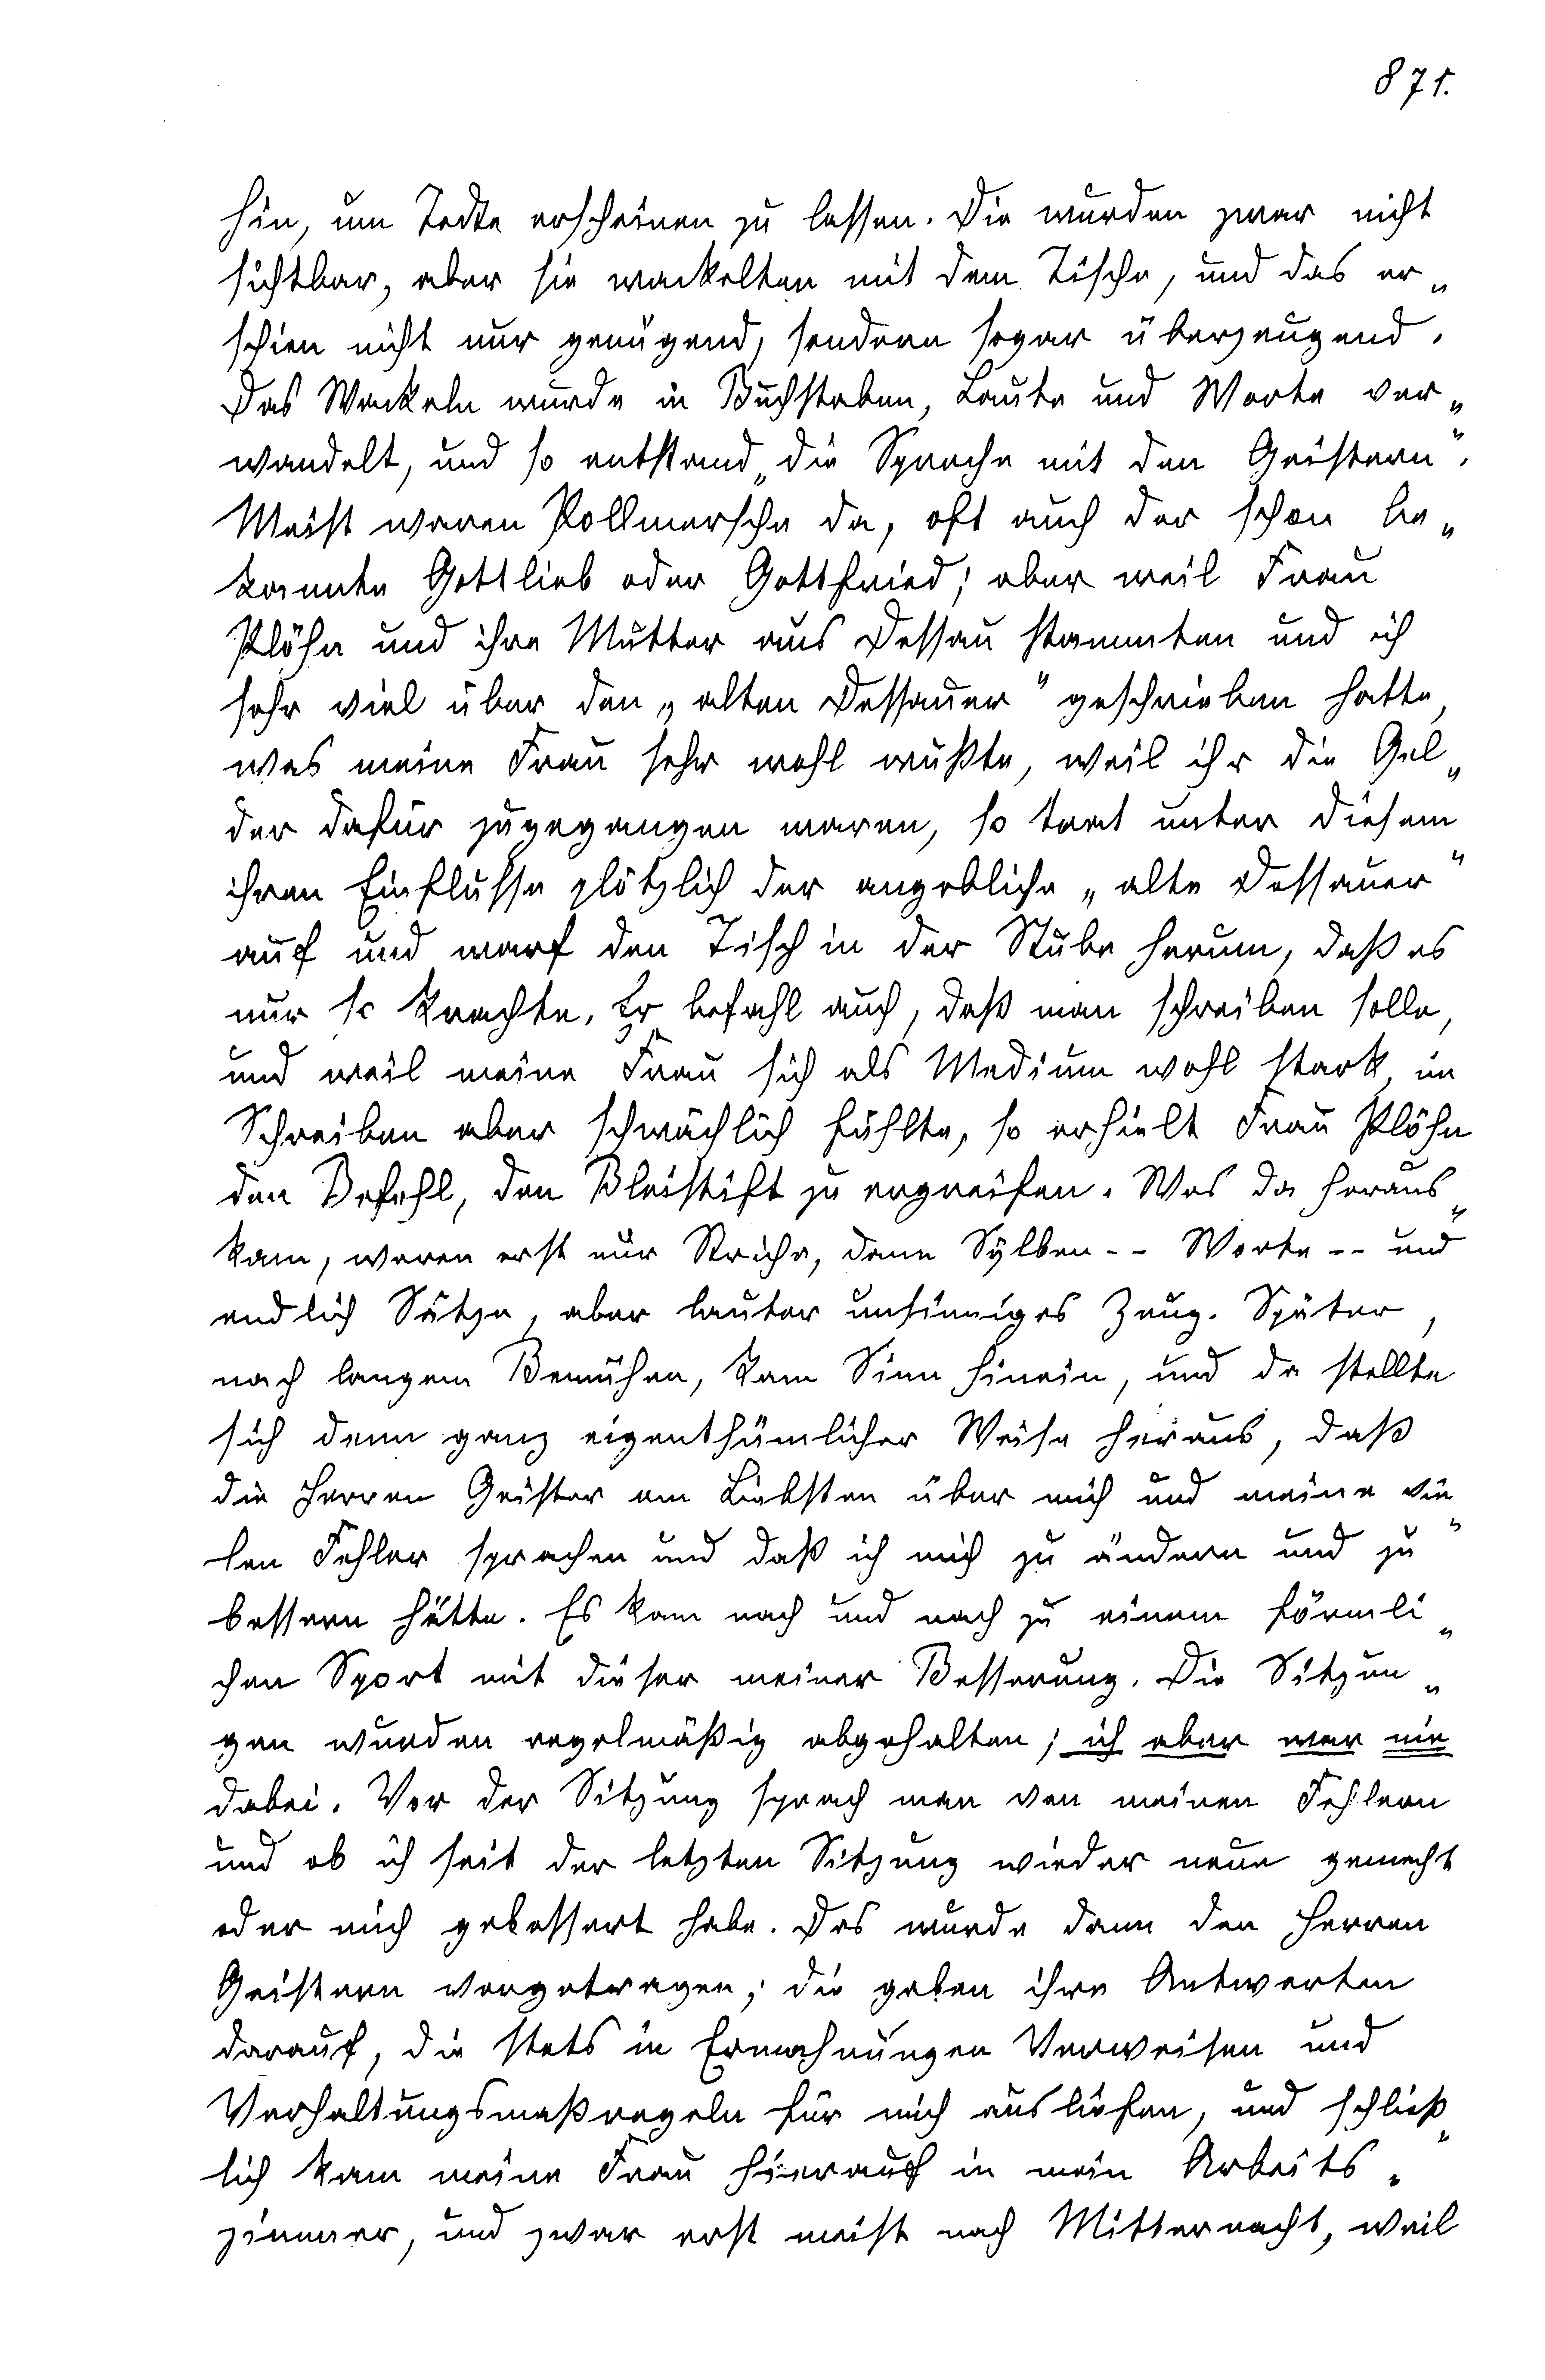 871.
hin, um Todte erscheinen zu lassen. Die wurden zwar nicht
sichtbar, aber sie wackelten mit dem Tische, und das er„
schien nicht nur genügend, sondern sogar überzeugend.
Das Wackeln wurde in Buchstaben, Laute und Worte ver„
wandelt, und so entstand „die Sprache mit den Geistern“.
Meist waren Pollmersche da, oft auch der schon be„
kannte Gottlieb oder Gottfried; aber weil Frau
Plöhn und ihre Mutter aus Dessau stammten und ich
sehr viel über den „alten Dessauer“ geschrieben hatte,
was meine Frau sehr wohl wußte, weil ihr die Gel„
der dafür zugegangen waren, so trat unter diesem
ihren Einflusse plötzlich der angebliche „alte Dessauer“
auf und warf den Tisch in der Stube herum, daß es
nur so krachte. Er befahl auch, daß man schreiben solle,
und weil meine Frau sich als Medium wohl stark, im
Schreiben aber schwächlich fühlte, so erhielt Frau Plöhn
den Befehl, den Bleistift zu ergreifen. Was da heraus„
kam, waren erst nur Striche, dann Sylben -- Worte -- und
endlich Sätze, aber lauter unsinniges Zeug. Später,
nach langem Bemühen, kam Sinn hinein, und da stellte
sich denn ganz eigenthümlicher Weise heraus, daß
die Herren Geister am Liebsten über mich und meine vie„
len Fehler sprachen und daß ich mich zu ändern und zu
bessern hätte. Es kam nach und nach zu einem förmli„
chen Sport mit dieser meiner Besserung. Die Sitzun„
gen wurden regelmäßig abgehalten; ich aber war nie
dabei. Vor der Sitzung sprach man von meinen Fehlern
und ob ich seit der letzten Sitzung wieder neue gemacht
oder mich gebessert habe. Das wurde dann den Herren
Geistern vorgetragen; die gaben ihre Antworten
darauf, die stets in Ermahnungen Verweisen und
Verhaltungsmaßregeln für mich ausliefen, und schließ„
lich kam meine Frau hierauf in mein Arbeits„
zimmer, und zwar erst meist nach Mitternacht, weil